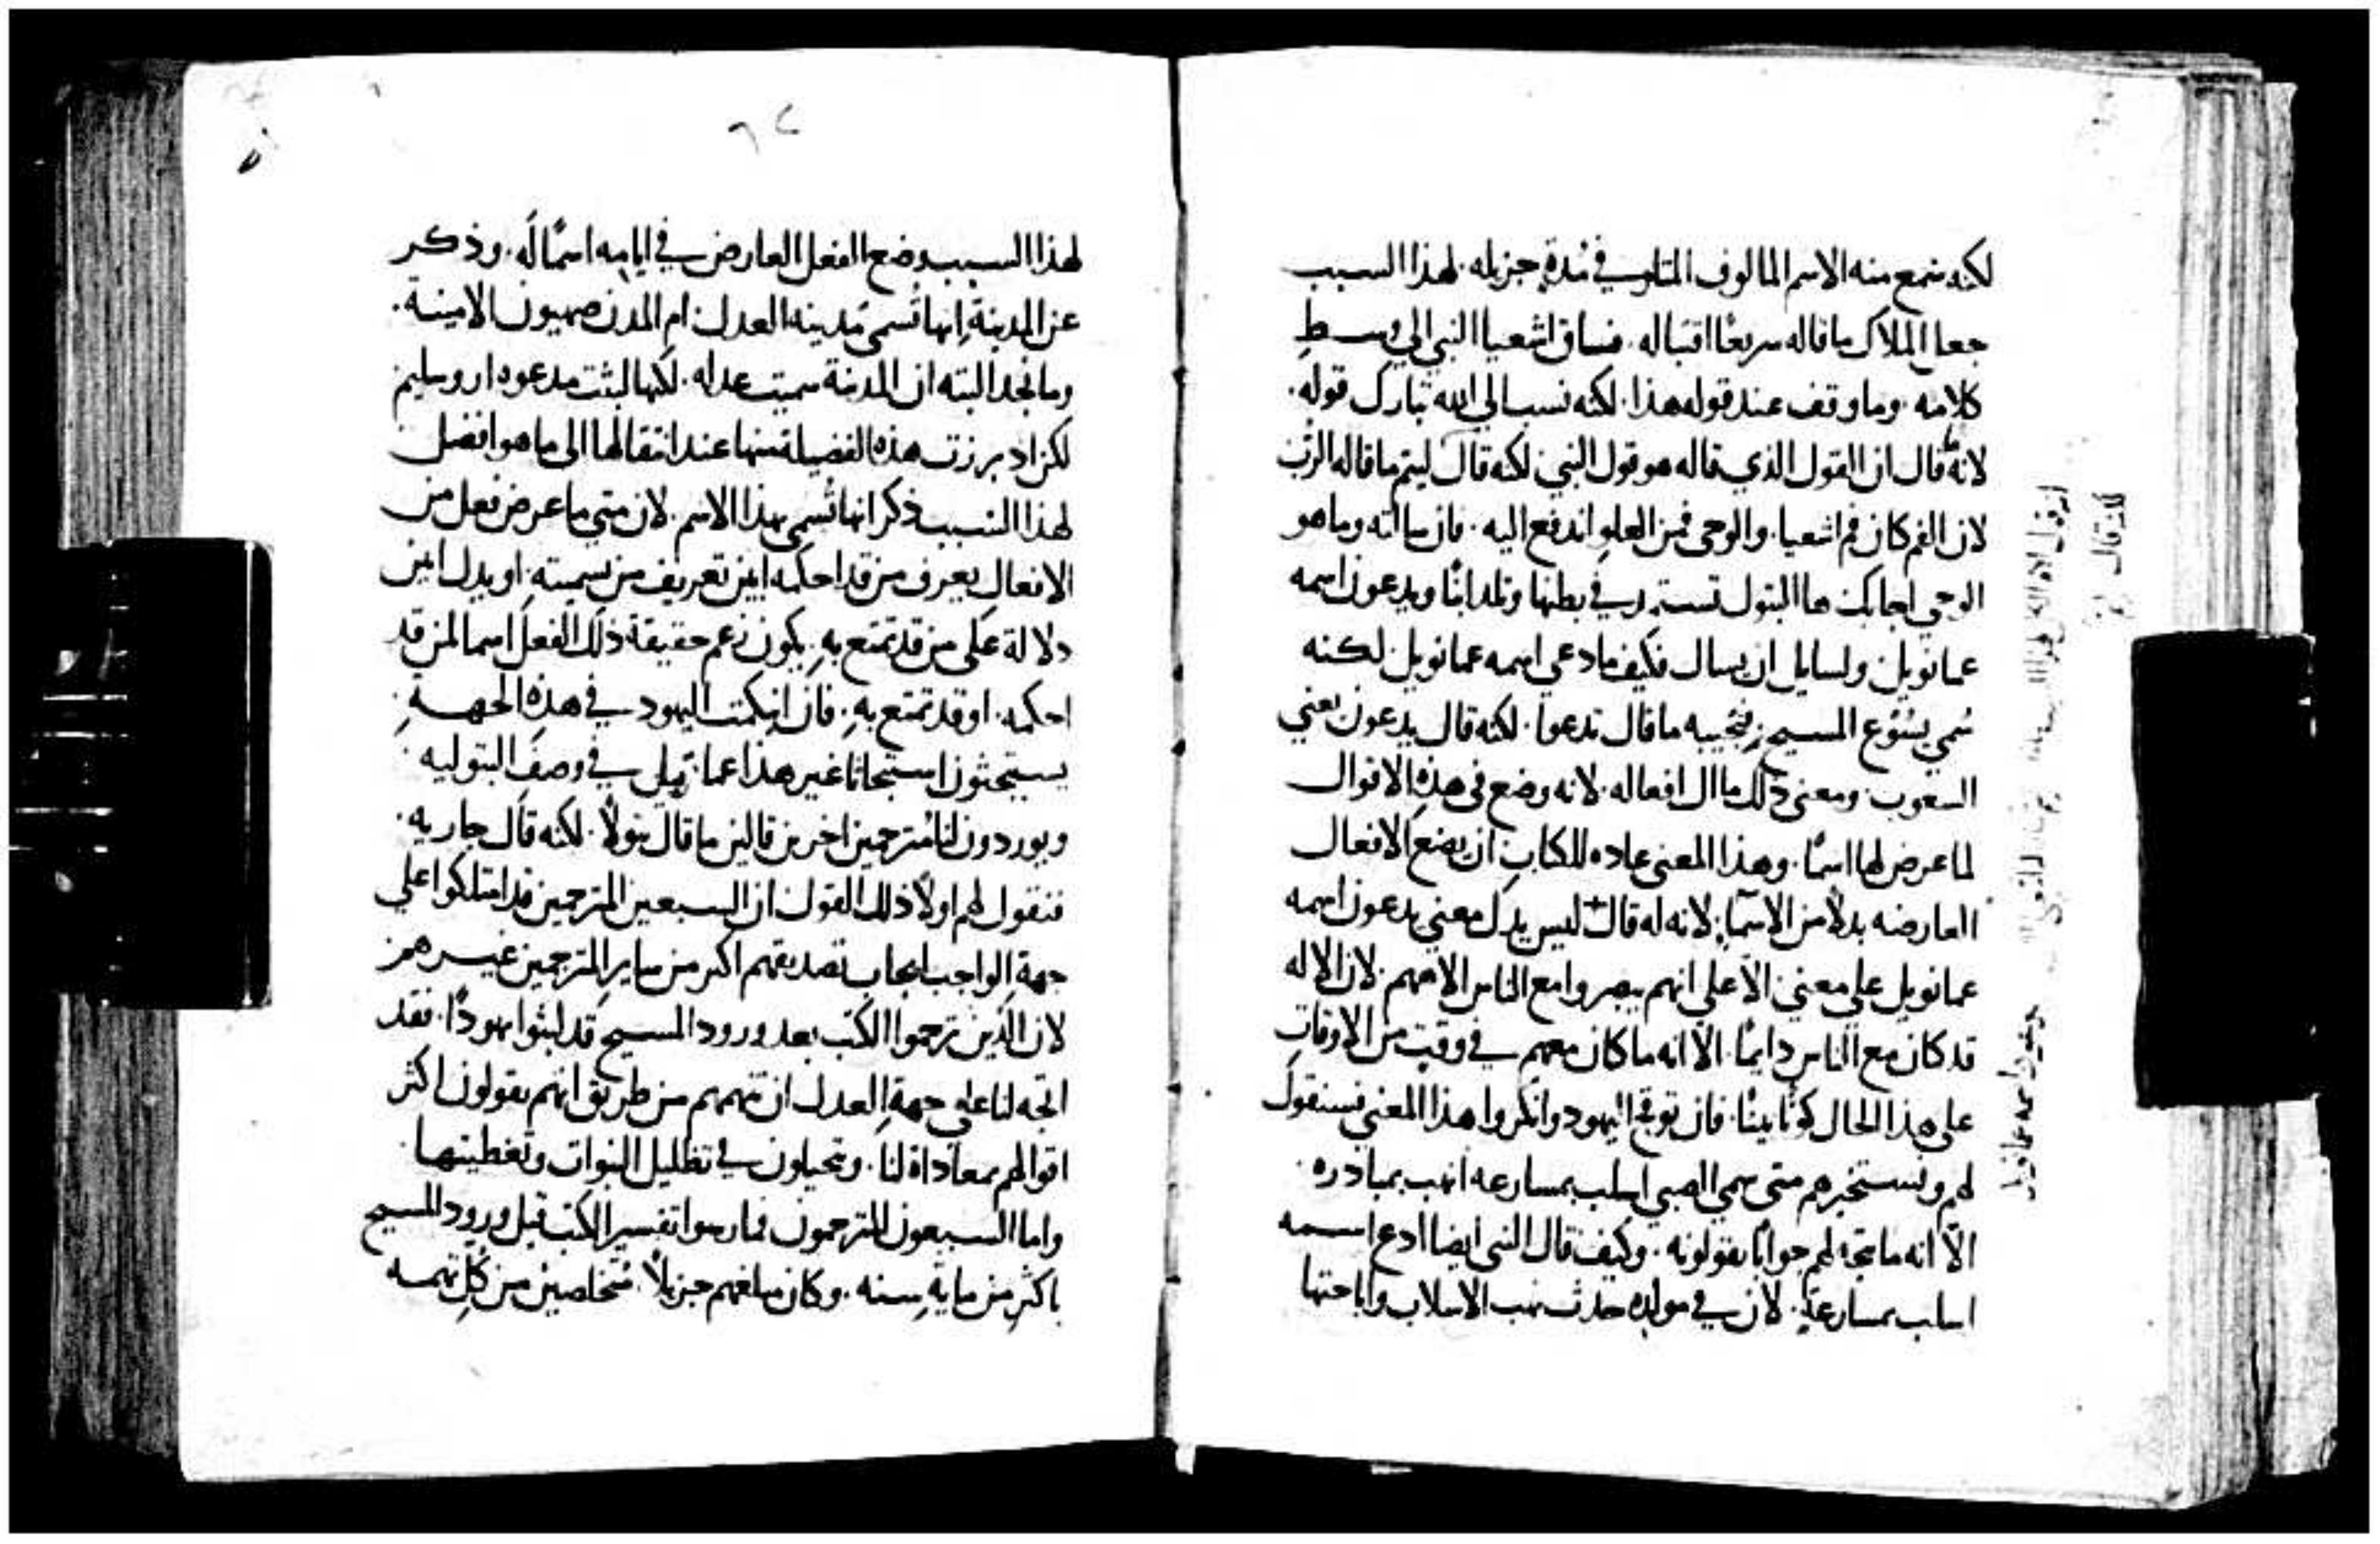 لكنه سمع منه الاسم المالوف المتلو في مدة جزيله. لهذا السبب
جعل الملاك ما قاله سريعًا اقتباله. فساق اشعيا النبي الي وسط
كلامه. وما وقف عند قوله هذا. لكنه نسب الي الله تبارك قوله.
لانه ما قال ان القول الذي قاله هو قول النبي. لكنه قال ليتم ما قاله الرب
لان الفم كان فم اشعيا. والوحي فمن العلو اندفع اليه. فان سالته وما هو
الوحي اجابك ها البتول تستمد في بطنها وتلد ابنًا ويدعون اسمه
عمانويل. ولسايل ان يسال فكيف ما دعي اسمه عمانويل. لكنه
سمي يسوع المسيح. فنجيبه ما قال تدعوا. لكنه قال يدعون يعني
الشعوب. ومعنى ذلك مال افعاله. لانه وضع في هذه الاقوال
لما عرض لها اسمًا. وهذا المعنى عاده للكتاب ان يضع الافعال
العارضه بدلًا من الاسما. لانه له قال ليس يدل معنى يدعون اسمه
عمانويل على معنى الا علي انهم يبصروا مع الناس الاههم. لان الاله
قد كان مع الناس دايمًا. الا انه ما كان معهم في وقت من الاوقات
على هذا الحال كونًا بينًا. فان توقح اليهود وانكروا هذا المعنى فسنقول
لهم ونستخبرهم متى سمي الصبي اسلب بمسارعه انهب بمبادره.
الا انه ما يتجه لهم جوابًا يقولونه. وكيف قال النبي ايضا ادع اسمه
اسلب بمسارعة. لان في مولده حدث نهب الاسلاب واباحتها
لانه قال
٦٢
لهذا السبب وضع الفعل العارض في ايامه اسمًا له. وذكر
عن المدينة انها تسمى مدينه العدل ام المدن صهيون الامينة.
وما نجد البته ان المدينة سميت عدله. لكنها لبثت مدعوه اروسليم
لكن اذ برزت هذه الفضيلة منها عند انتقالها الى ما هو افضل
لهذا السبب ذكر انها تسمى بهذا الاسم. لان متى ما عرض فعل من
الافعال يعرف من قد احكمه ابين تعريف من تسميته. او يدل ابين
دلالة على من قد تمتع به. يكون زعم حقيقة ذلك الفعل اسما لمن قد
احكمه. او قد تمتع به. فان انبكمت اليهود في هذه الجهة.
يستبحثون استبحاثا غير هذا عما قيل في وصف البتوليه
ويوردون لنا مترجمين اخرين قالين ما قال بتولًا. لكنه قال جاريه.
فنقول لهم اولًا ذلك القول ان السبعين المترجمين قد امتلكوا علي
جهة الواجب ايجاب تصديقهم اكثر من ساير المترجمين غيرهم
لان الذين ترجموا الكتب بعد ورود المسيح قد لبثوا يهودًا. فقد
اتجه لنا على جهة العدل ان نتهمهم من طريق انهم يقولون اكثر
اقوالهم بمعاداة لنا. ويتحيلون في تظليل النبوات وتغطيتها.
واما السبعون المترجمون فمارسوا تفسير الكتب قبل ورود المسيح
باكثر من ماية سنه. وكان مبلغهم جزيلًا. متخلصين من كل تهمه